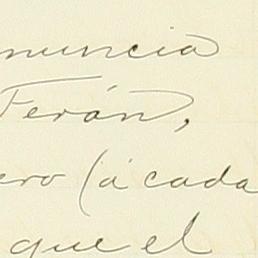 nuncia
Ferán,
ero (á cada
que el